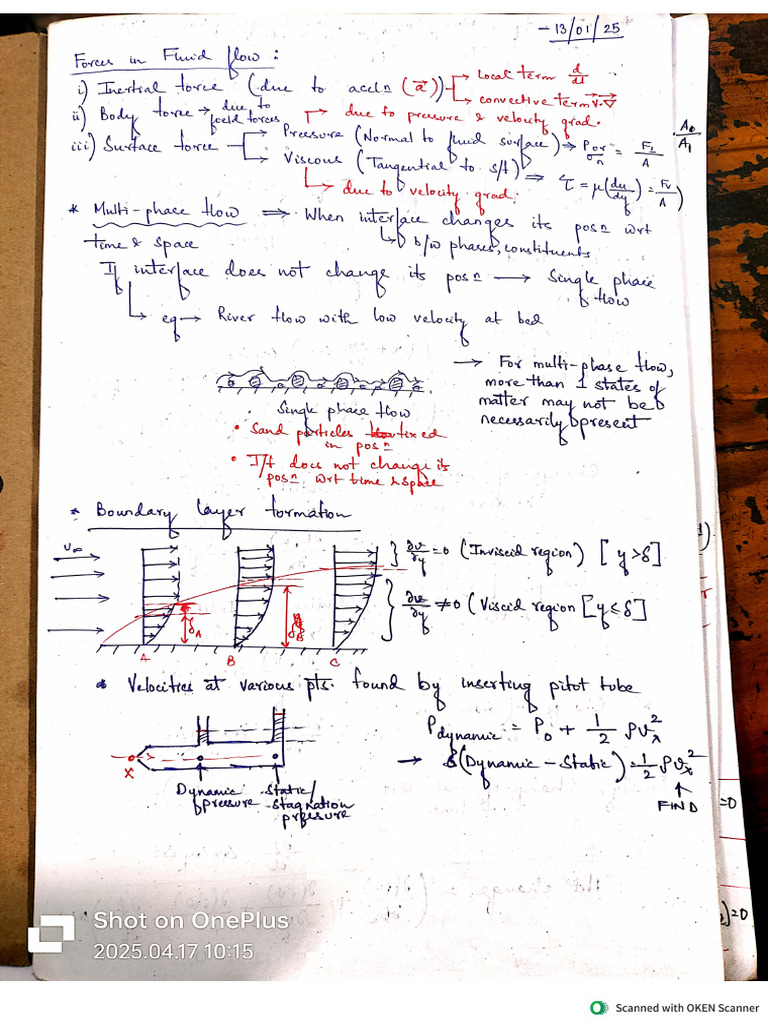 - 13/01/25
Forces in Fluid flow :
i) Inertial force (due to accln (a⃗)) → Local term d/dt
→ convective term V⃗.∇⃗
ii) Body force → due to field forces
→ due to pressure & velocity grad.
iii) Surface force → Pressure (Normal to fluid surface) ⇒ P or σn = F⊥/A
A0/A1
→ Viscous (Tangential to s/f) ⇒ τ = μ(du/dy) = Fv/A)
→ due to velocity grad.
* Multi-phase flow ⇒ When interface changes its posn wrt
↳ b/w phases, constituents
time & space
If interface does not change its posn → Single phase flow
↳ eg → River flow with low velocity at bed
→ For multi-phase flow,
more than 1 states of
matter may not be
necessarily present
Single phase flow
• Sand particles fixed
in posn
• I/f does not change its
posn wrt time & space
* Boundary layer formation
U∞
} ∂v/∂y = 0 (Inviscid region) [y > δ]
} ∂v/∂y ≠ 0 (Viscid region [y ≤ δ]
δA
δB
A B C
* Velocities at various pts. found by inserting pitot tube
Pdynamic = P0 + 1/2 ρvx²
→ (Dynamic - Static) = 1/2 ρvx²
↑
FIND
X
Dynamic pressure
Static/
stagnation
pressure
=0
)=0
Shot on OnePlus
2025.04.17 10:15
Scanned with OKEN Scanner